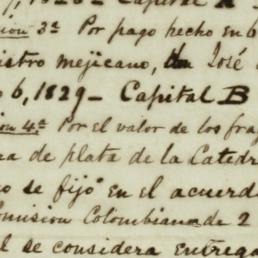 1, 1828 - Capital A
sion 3ª Por pago hecho en 6
istro mejicano, Don José
o 6, 1829 - Capital B
ion 4ª Por el valor de los frag
na de plata de la Catedr
o se fijó en el acuerdo
omision Colombiana de 2
l se considera entrega